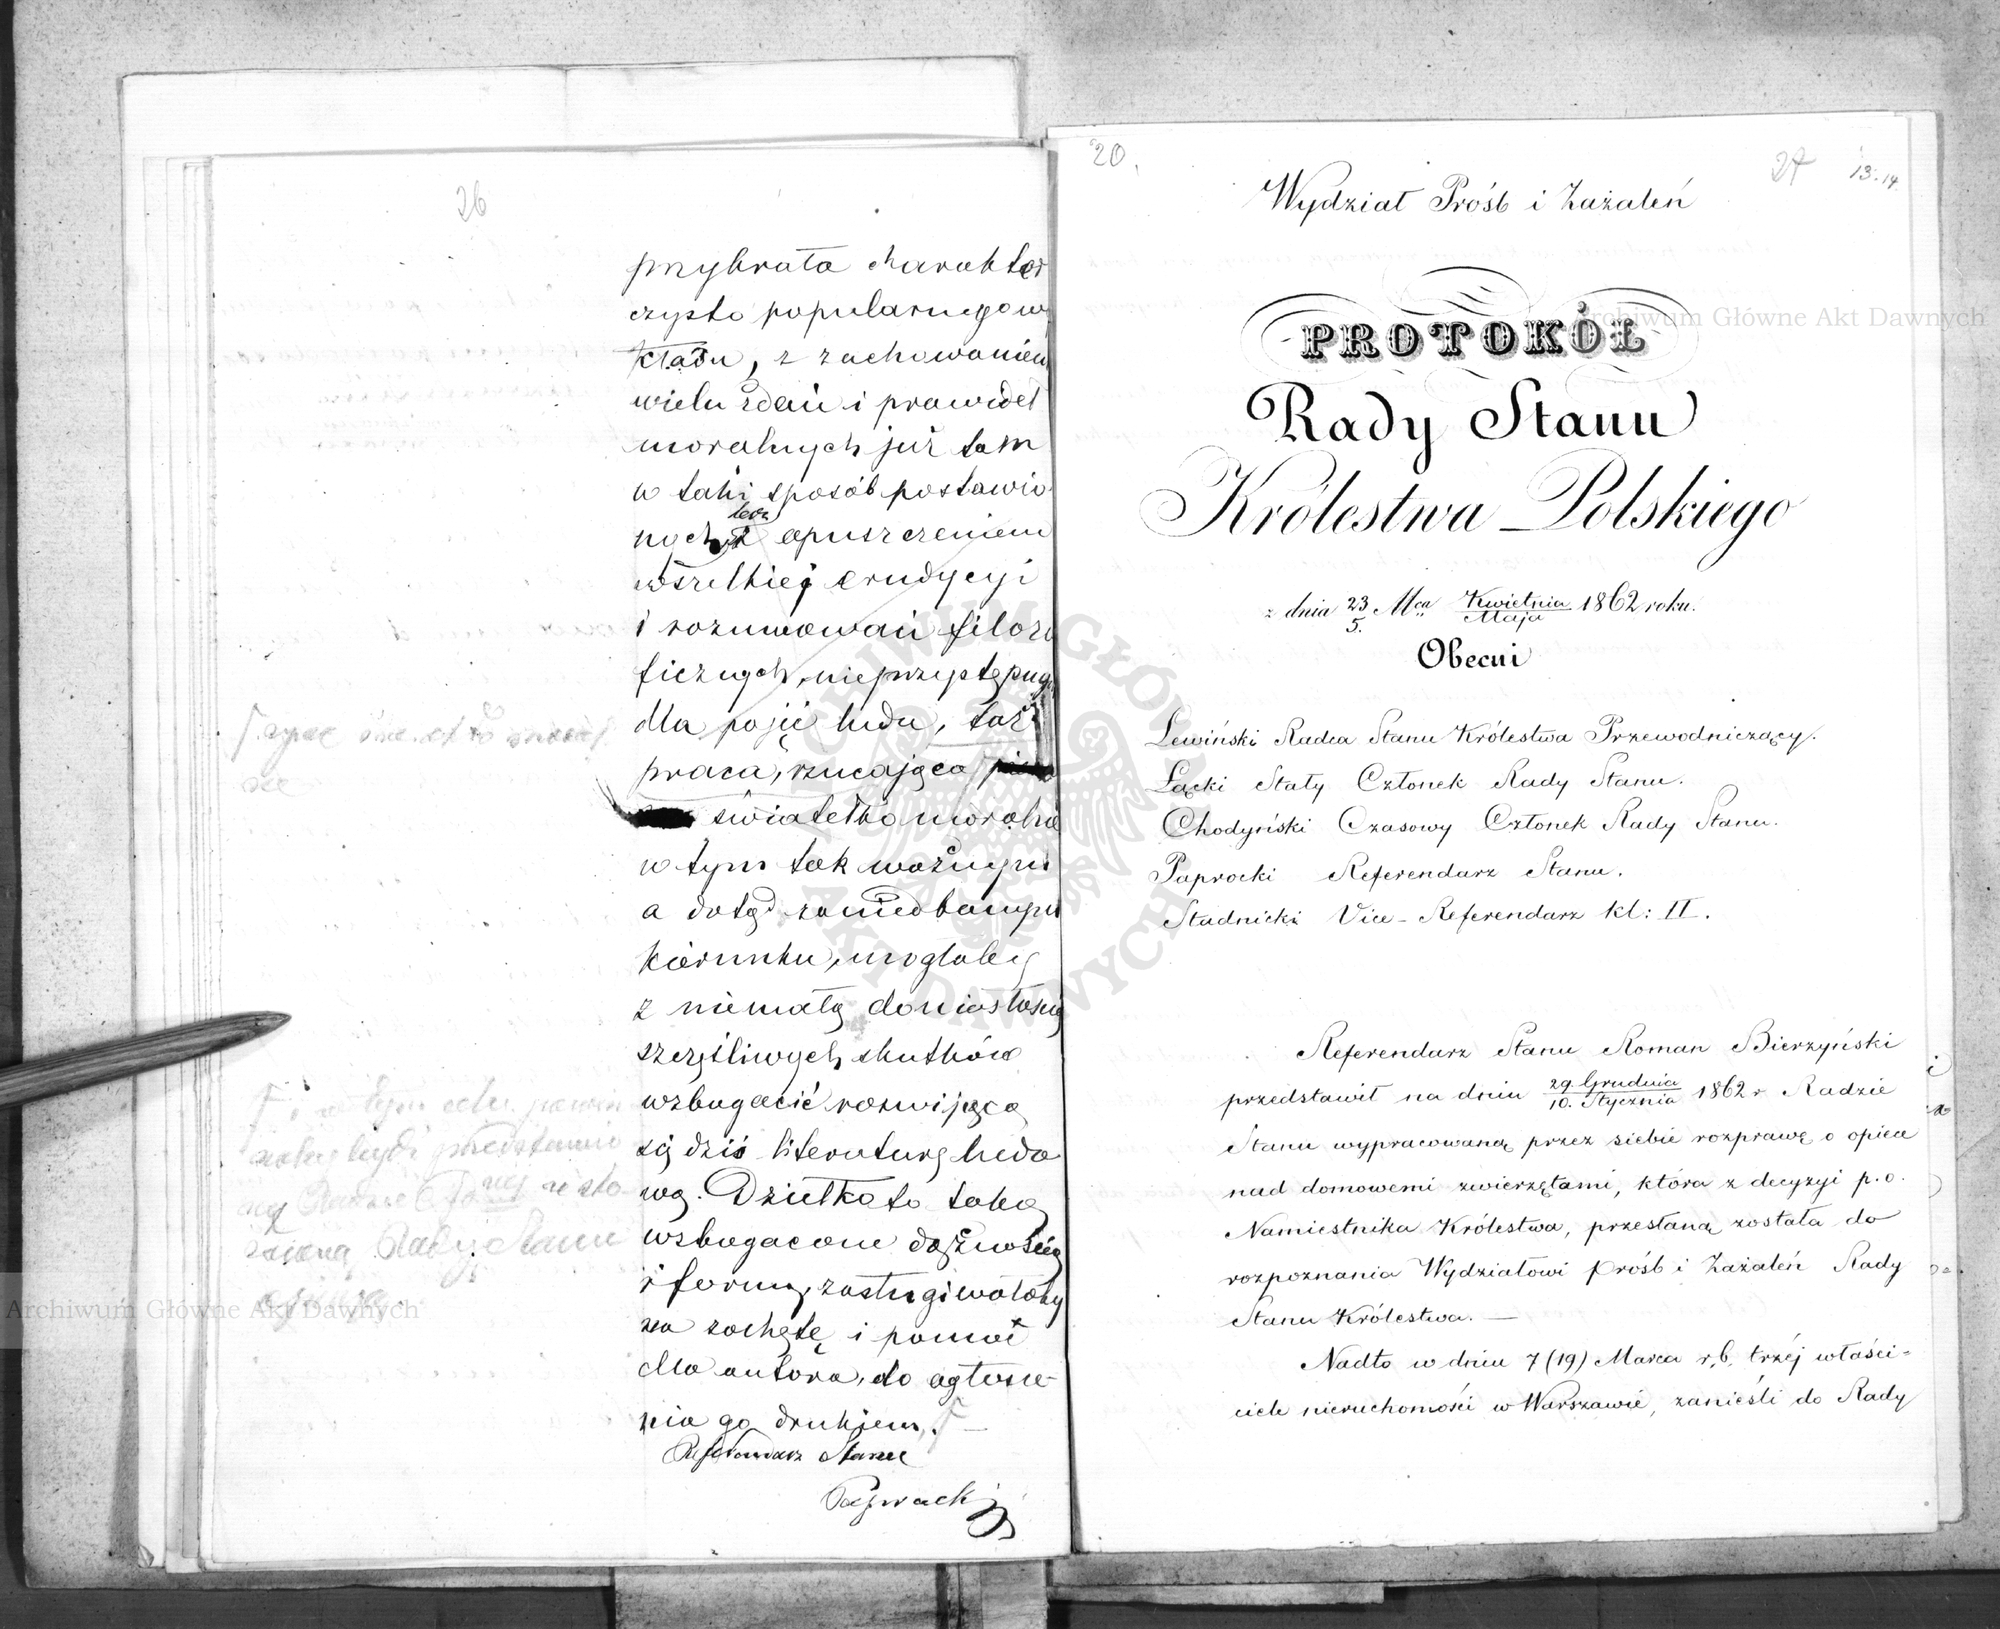 26
przybrała charakter
czysto popularnego wy
kładu, z zachowaniem
wielu zdań i prawideł
moralnych już tam
w taki sposób postawio
nych lecz z opuszczeniem
wszelkiej erudycyi
i rozumowań filozo
ficznych, nieprzystępnych
dla pojęć ludu, taż
praca, rzucająca
światełko moralne
w tym tak ważnym
a dotąd zaniedbanym
kierunku, mogłaby
z niemałą doniosłością
szczęśliwych skutków
wzbogacić rozwijającą
się dziś literaturę ludo
wą. Dziełko to taką
wzbogacone dążnością
i formą, zasługiwałoby
na zachętę i pomoc
dla autora, do ogłosze-
nia go drukiem.
Referendarz Stanu
Paprocki
Rady Stanu
20.
27
13.14
Wydział Próśb i Zażaleń
PROTOKÓŁ
Rady Stanu
Królestwa Polskiego
z dnia 23/5. Mca Kwietnia/Maja 1862 roku.
Obecni
Lewiński Radca Stanu Królestwa Przewodniczący.
Łącki Stały Członek Rady Stanu.
Chodyński Czasowy Członek Rady Stanu.
Paprocki Referendarz Stanu.
Stadnicki Vice-Referendarz kl: II.
Referendarz Stanu Roman Bierzyński
przedstawił na dniu 29. Grudnia/10. Stycznia 1862 r Radzie
Stanu wypracowaną przez siebie rozprawę o opiece
nad domowemi zwierzętami, która z decyzyi p.o.
Namiestnika Królestwa, przesłaną została do
rozpoznania Wydziałowi Próśb i Zażaleń Rady
Stanu Królestwa. —
Nadto w dniu 7 (19) Marca r.b. trzéj właści=
ciele nieruchomości w Warszawie, zanieśli do Rady
Archiwum Główne Akt Dawnych
Archiwum Główne Akt Dawnych
ARCHIWUM GŁÓWNE AKT DAWNYCH